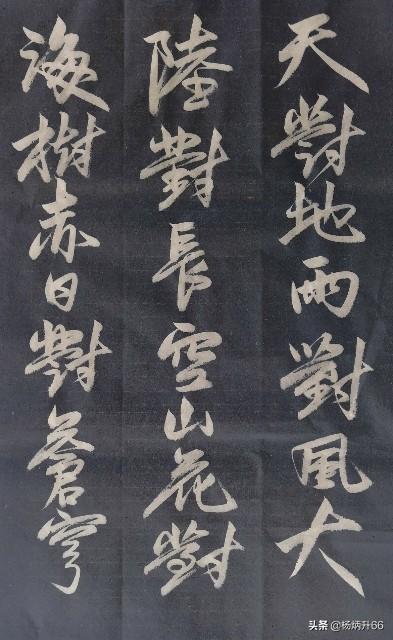 天對地雨對風大
陸對長空山花對
海樹赤日對蒼穹
头条 @杨炳升66